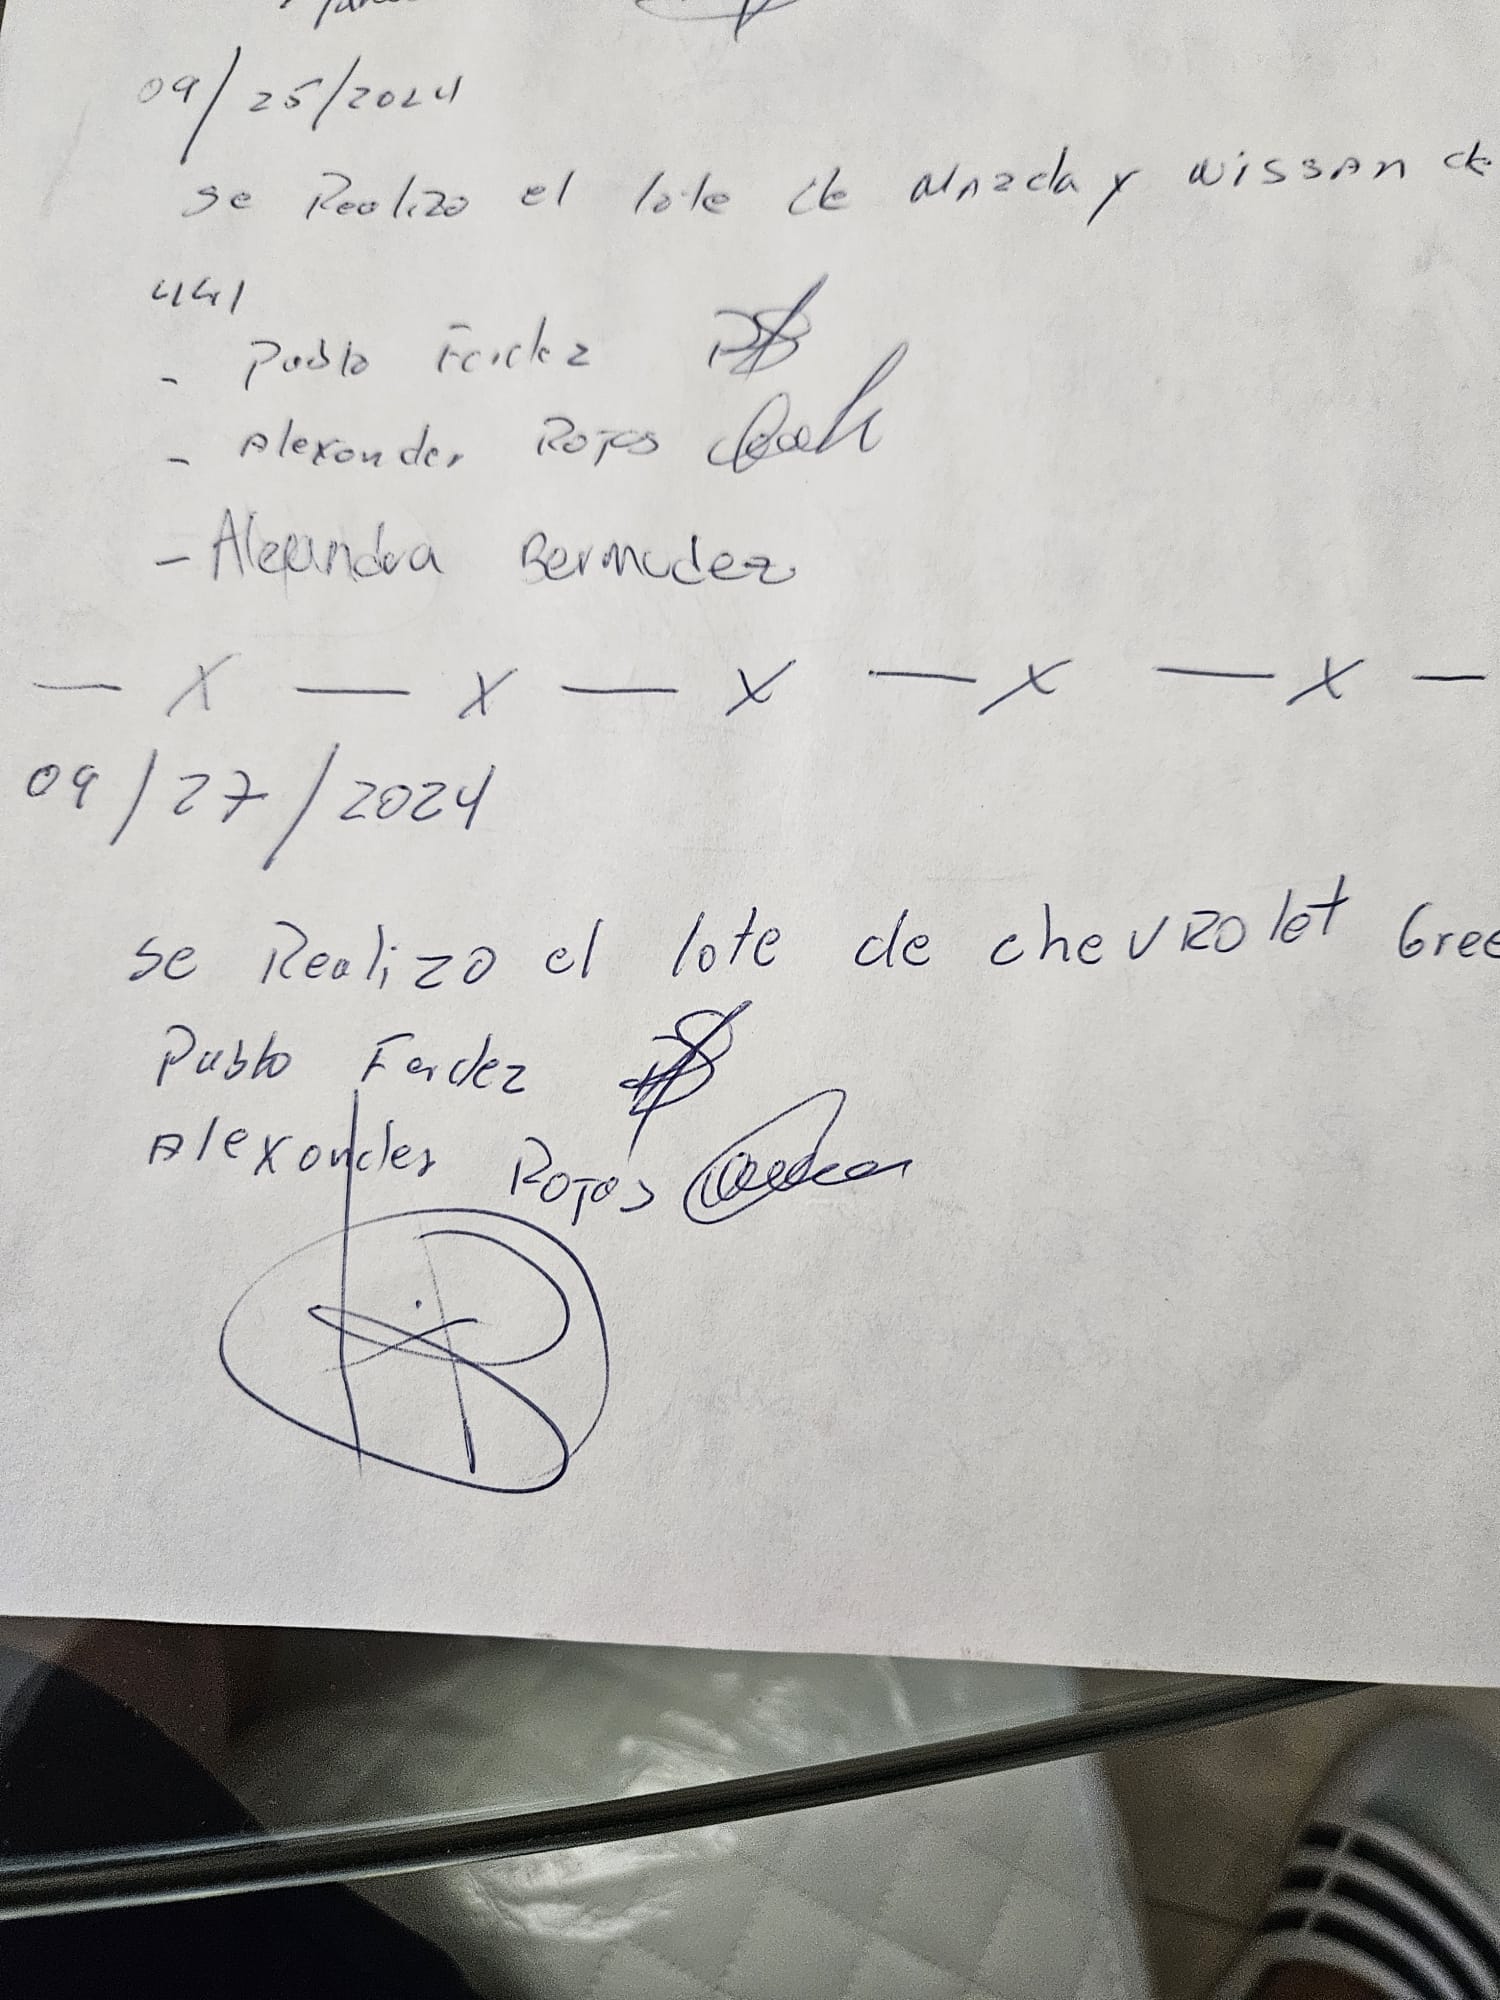 09/25/2024
se Realizo el lote de Mazda y Nissan de
441
- Pablo Ferdez
- Alexander Rojas
- Alejandra Bermudez
— X — X — X — X — X —
09/27/2024
se Realizo el lote de chevrolet Gree
Pablo Ferdez
Alexander Rojas